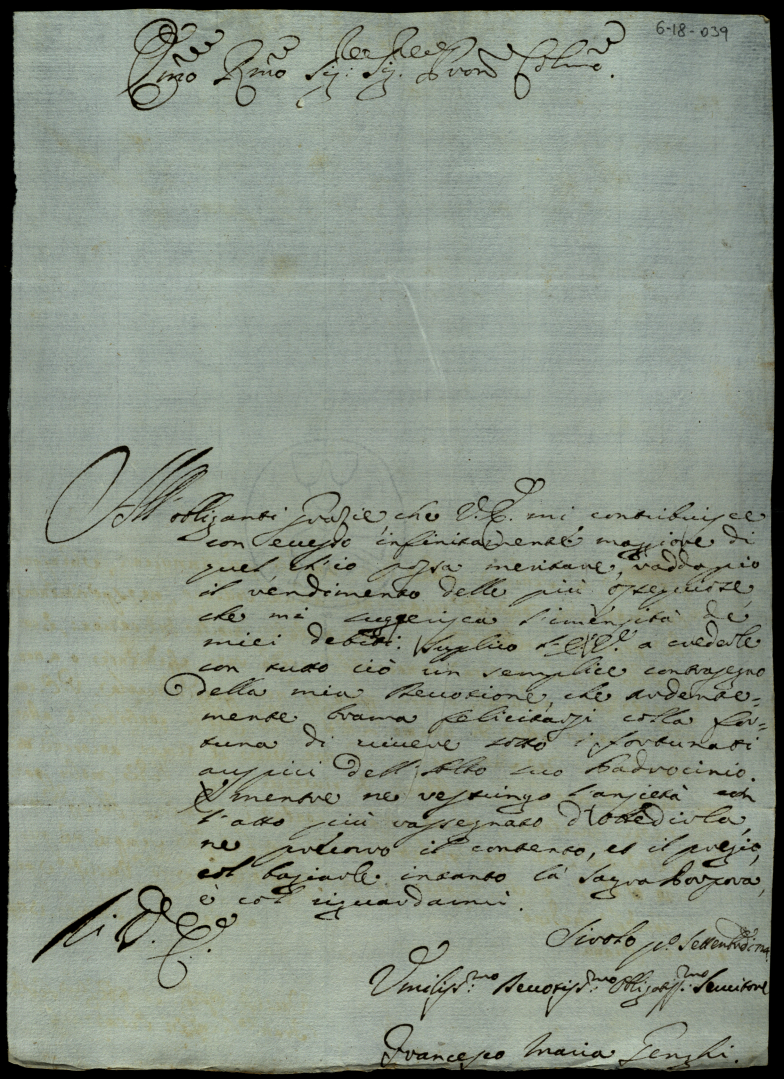 6-18-039
Em̃o Rm̃o Sig.r Sig.r Pron Colmo.
All' obliganti Grazie che V. E. mi contribuisce
con ecceso infinitamente maggiore di
quel ch'io possa meritare, raddoppio
il rendimento delle più osseguiose,
che mi suggerisca l'imensità de
miei debiti. Suplico V. E. a crederle
con tutto ciò un semplice contrasegno
della mia Devozione, che ardente=
mente brama felicitarsi colla for=
tuna di vivere sotto i fortunati
auspici dell'Alto suo Padrocinio.
E mentre ne restringo l'ansietà
l'atto più rassegnato d'obbedirla,
ne procuro il contento, et il pregio,
col bagiarle intanto la Sagra Porpora,
è col riguardarmi.
Di V. E.
Sivolo p.o Settembre
Umiliss.mo Devotiss.mo Obligatiss.mo Servitore
Francesco Maria Genghi.